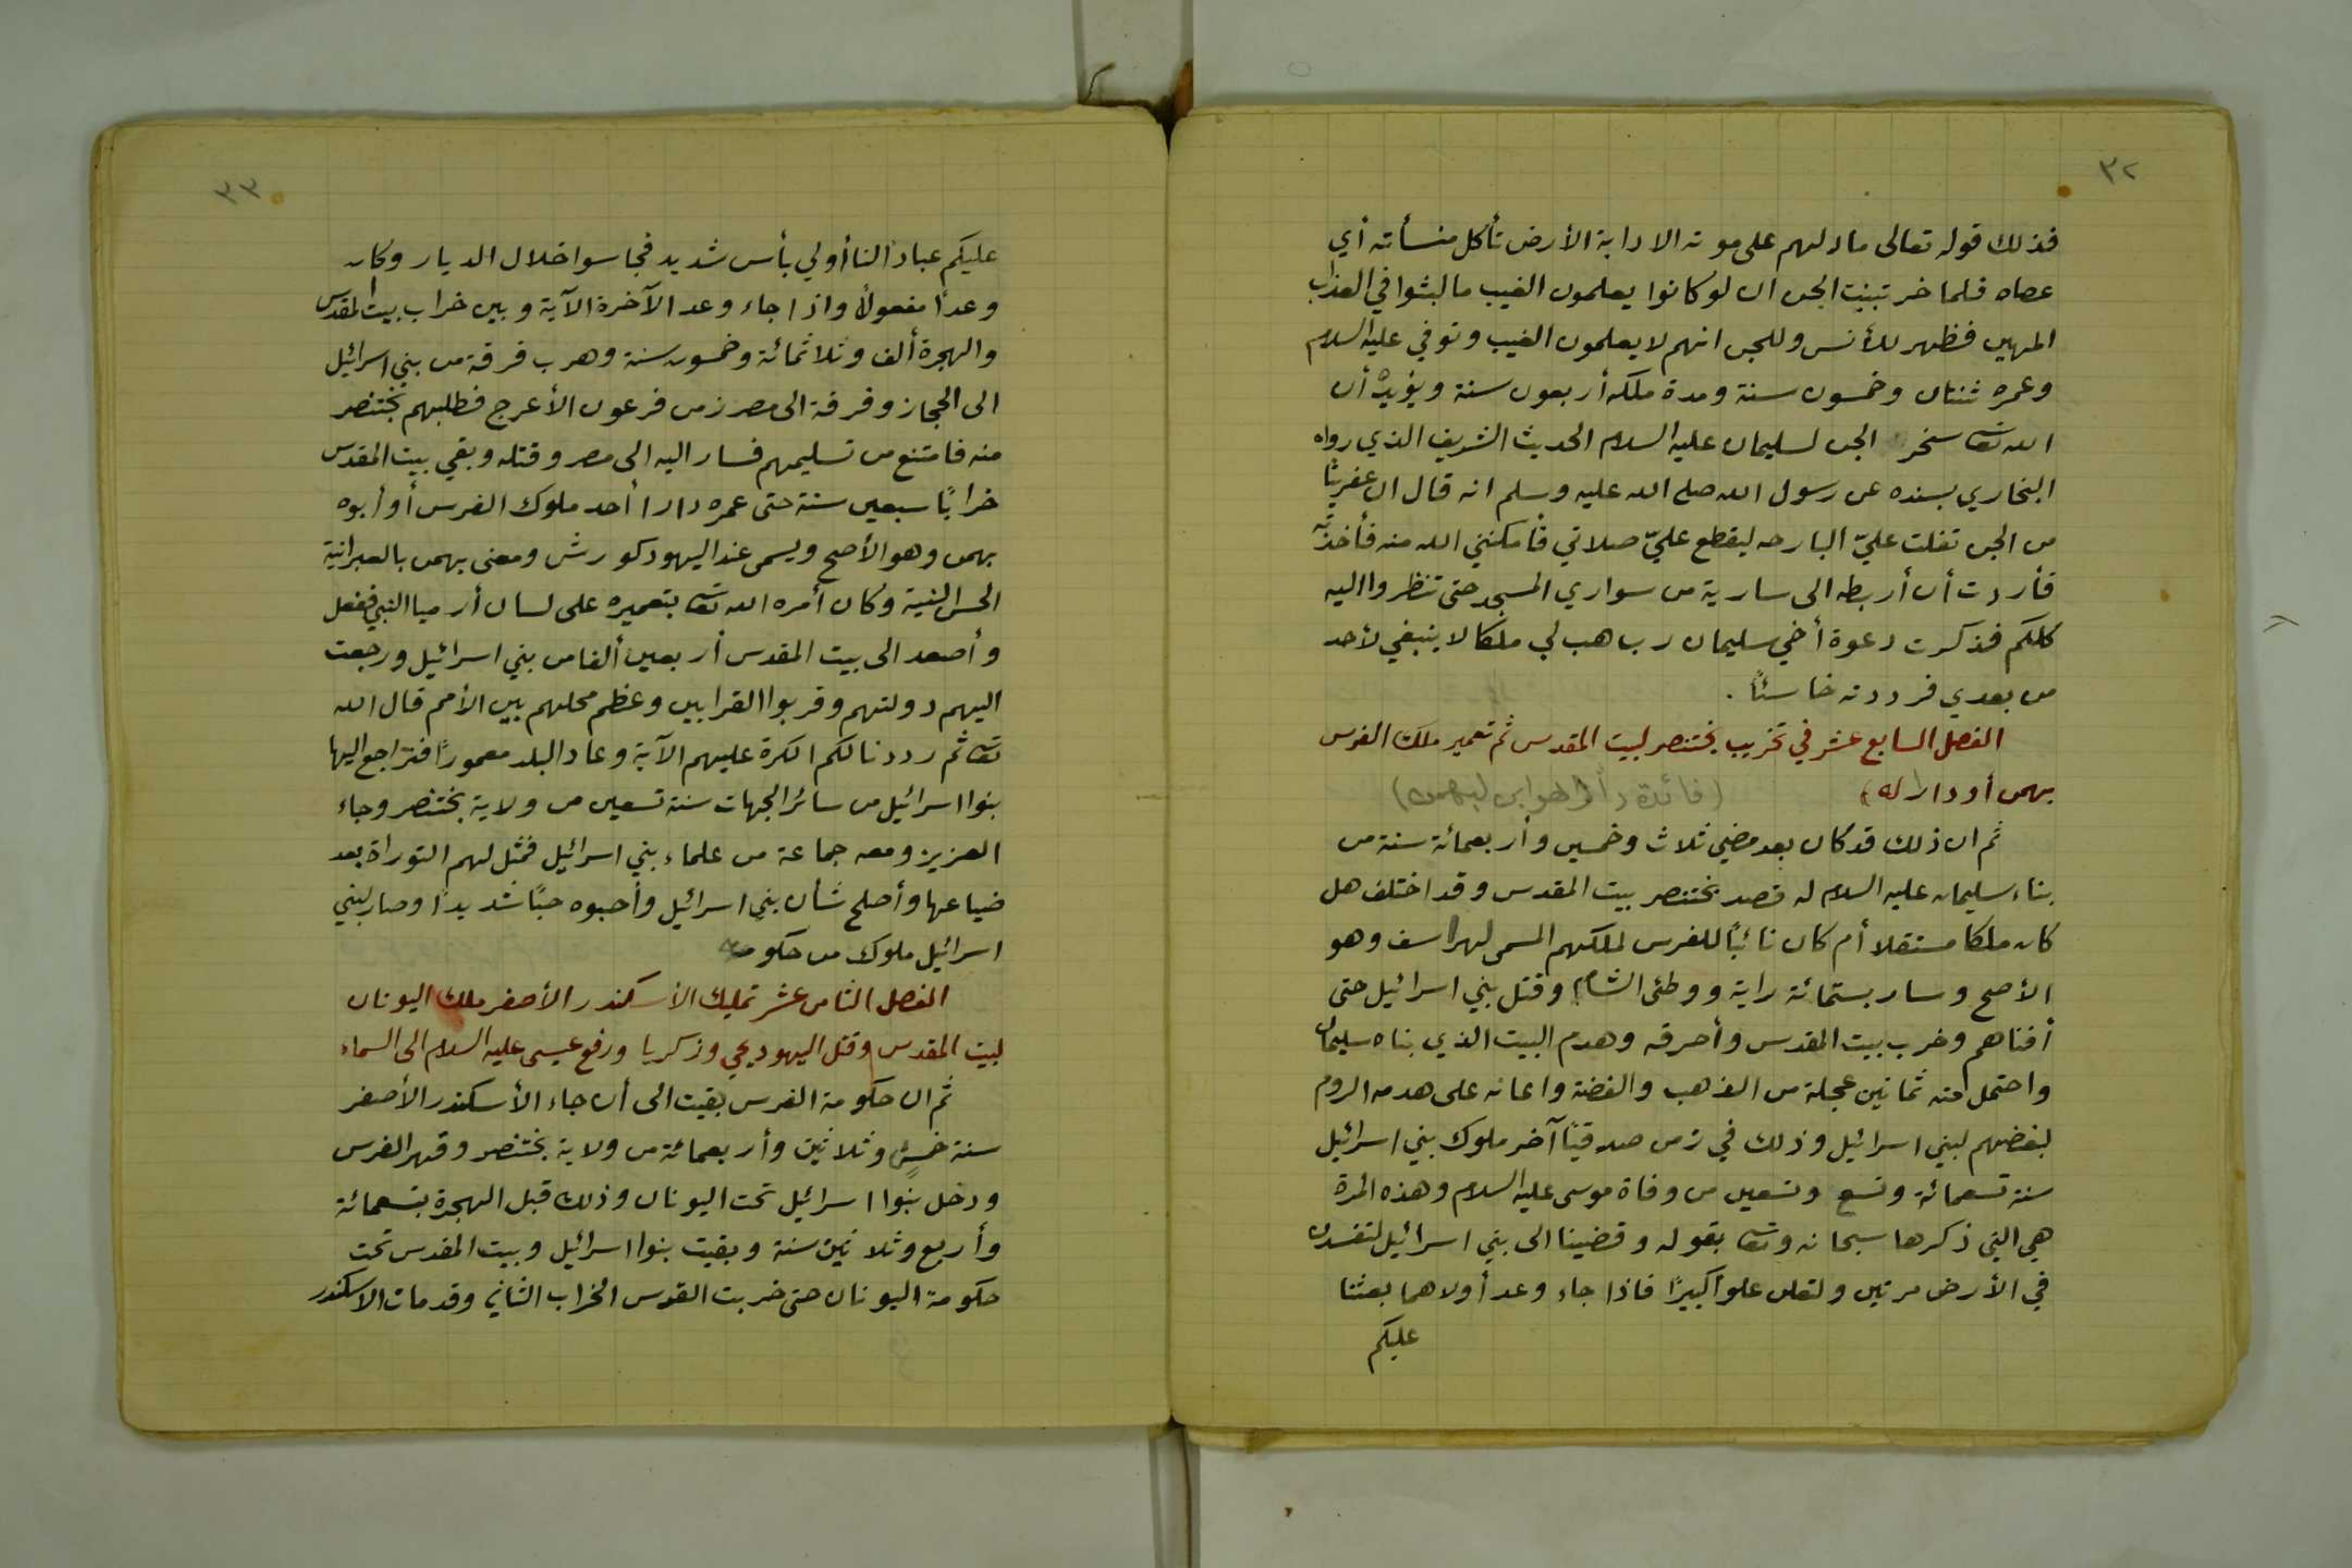 ٣٢
فذلك قوله تعالى ما دلهم على موته الا دابة الأرض تأكل منسأته أي
عصاه فلما خر تبينت الجن ان لو كانوا يعلمون الغيب ما لبثوا في العذاب
المهين فظهر للأنس وللجن انهم لا يعلمون الغيب وتوفي عليه السلام
وعمره ثنتان وخمسون سنة ومدة ملكه أربعون سنة ويؤيد أن
الله تعا سخر الجن لسليمان عليه السلام الحديث الشريف الذي رواه
البخاري بسنده عن رسول الله صلى الله عليه وسلم انه قال ان عفريتًا
من الجن تفلت عليّ البارحه ليقطع عليّ صلاتي فأمكنني الله منه فأخذته
فأردت أن أربطه الى سارية من سواري المسجد حتى تنظروا اليه
كلكم فذكرت دعوة أخي سليمان رب هب لي ملكا لا ينبغي لأحد
من بعدي فرددته خاسئًا .
الفصل السابع عشر في تخريب بختنصر لبيت المقدس ثم تعمير ملك الفرس
بهمن أو دارا له) (فائدة دارا هو ابن لبهمن)
ثم ان ذلك قد كان بعد مضي ثلاث وخمسين وأربعمائة سنة من
بناء سليمان عليه السلام له قصد بختنصر بيت المقدس وقد اختلف هل
كان ملكا مستقلا أم كان نائبًا للفرس لملكهم المسمى لهراسف وهو
الأصح وسار بستمائة راية ووطئ الشام وقتل بني اسرائيل حتى
أفناهم وخرب بيت المقدس وأحرقه وهدم البيت الذي بناه سليمان
واحتمل منه ثمانين عجلة من الذهب والفضة واعانه على هدمه الروم
لبغضهم لبني اسرائيل وذلك في زمن صدقيّا آخر ملوك بني اسرائيل
سنة تسعمائة وتسع وتسعين من وفاة موسى عليه السلام وهذه المرة
هي التي ذكرها سبحانه وتعا بقوله وقضينا الى بني اسرائيل لتفسدن
في الأرض مرتين ولتعلن علوا كبيرًا فاذا جاء وعد أولاهما بعثنا
عليكم
٣٣
عليكم عبادًا لنا أولي بأس شديد فجاسوا خلال الديار وكان
وعدًا مفعولًا واذا جاء وعد الآخرة الآية وبين خراب بيت المقدس
والهجرة ألف وثلاثمائة وخمسون سنة وهرب فرقة من بني اسرائيل
الى الحجاز وفرقة الى مصر زمن فرعون الأعرج فطلبهم بختنصر
منه فامتنع من تسليمهم فسار اليه الى مصر وقتله وبقي بيت المقدس
خرابًا سبعين سنة حتى عمره دارا أحد ملوك الفرس أو أبوه
بهمن وهو الأصح ويسمى عند اليهود كورش ومعنى بهمن بالعبرانية
الحسن النية وكان أمره الله تعا بتعميره على لسان أرميا النبي ففعل
وأصعد الى بيت المقدس أربعين ألفا من بني اسرائيل ورجعت
اليهم دولتهم وقربوا القرابين وعظم محلهم بين الأمم قال الله
تعا ثم رددنا لكم الكرة عليهم الآية وعاد البلد معمورًا فتراجع اليها
بنوا اسرائيل من سائر الجهات سنة تسعين من ولاية بختنصر وجاء
العزيز ومعه جماعة من علماء بني اسرائيل فمثل لهم التوراة بعد
ضياعها وأصلح شأن بني اسرائيل وأحبوه حبًا شديدًا وصار لبني
اسرائيل ملوك من حكومة
الفصل الثامن عشر تمليك الأسكندر الأصغر ملك اليونان
لبيت المقدس وقتل اليهود يحي وزكريا ورفع عيسى عليه السلام الى السماء
ثم ان حكومة الفرس بقيت الى أن جاء الأسكندر الأصغر
سنة خمس وثلاثين وأربعمائة من ولاية بختنصر وقهر الفرس
ودخل بنوا اسرائيل تحت اليونان وذلك قبل الهجرة بتسعمائة
وأربع وثلاثين سنة وبقيت بنوا اسرائيل وبيت المقدس تحت
حكومة اليونان حتى خربت القدس الخراب الثاني وقد مات الاسكندر